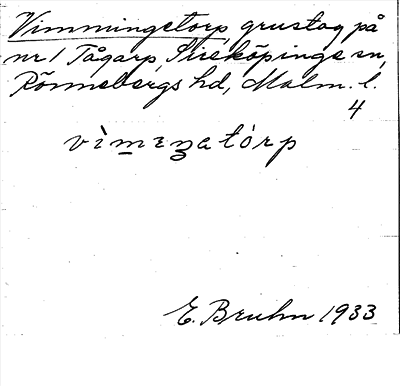 Vimmingetorp, grustag på
nr 1 Tågarp, Sireköpinge sn,
Rönnebergs hd, Malm. l.
4
vìmeŋatórp
E. Bruhn 1933